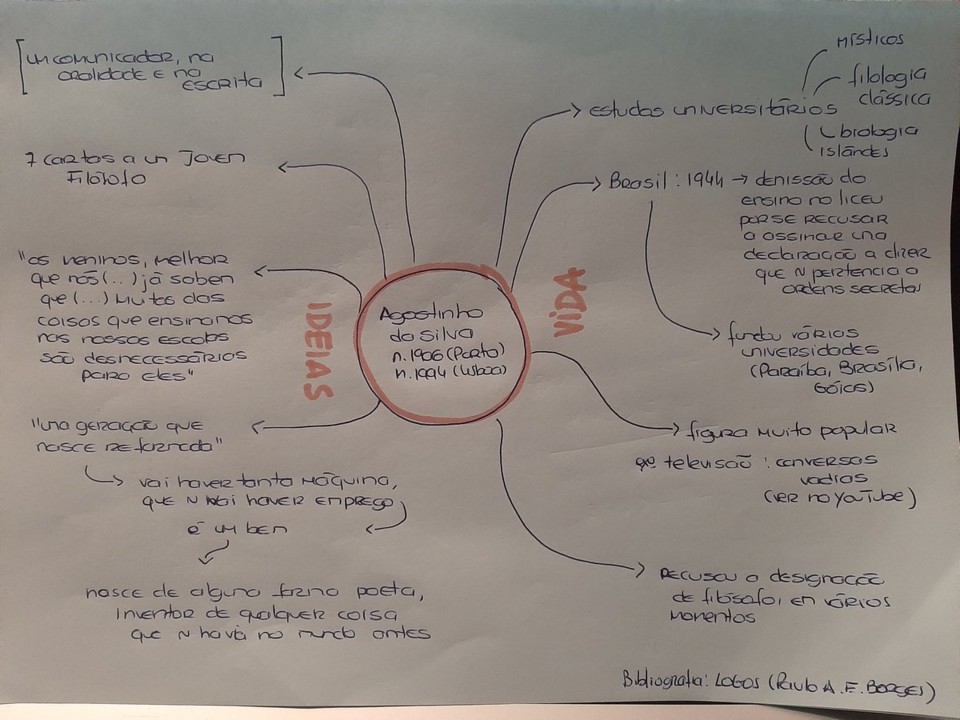 [um comunicador, na
oralidade e na
escrita]
7 cartas a um jovem
filólofo
"os meninos, melhor
que nós (...) já sabem
que (...) muitas das
coisas que ensinamos
nas nossas escolas
são desnecessárias
para eles"
"uma geração que
nasce reformada"
vai haver tanta máquina,
que ñ vai haver emprego
é um bem
nasce de alguma forma poeta,
inventor de qualquer coisa
que ñ havia no mundo antes
IDEIAS
Agostinho
da Silva
n. 1906 (Porto)
n. 1994 (Lisboa)
VIDA
místicos
filologia
clássica
estudos universitários
biologia
islândes
Brasil: 1944 → demissão do
ensino no liceu
por se recusar
a assinar uma
declaração a dizer
que ñ pertencia a
ordens secretas
funda várias
universidades
(Paraíba, Brasília,
Góias)
figura muito popular
televisão: conversas
vadias
(ver no YouTube)
recusou a designação
de filósofo, em vários
momentos
Bibliografia: LOGOS (Paulo A. E. Borges)